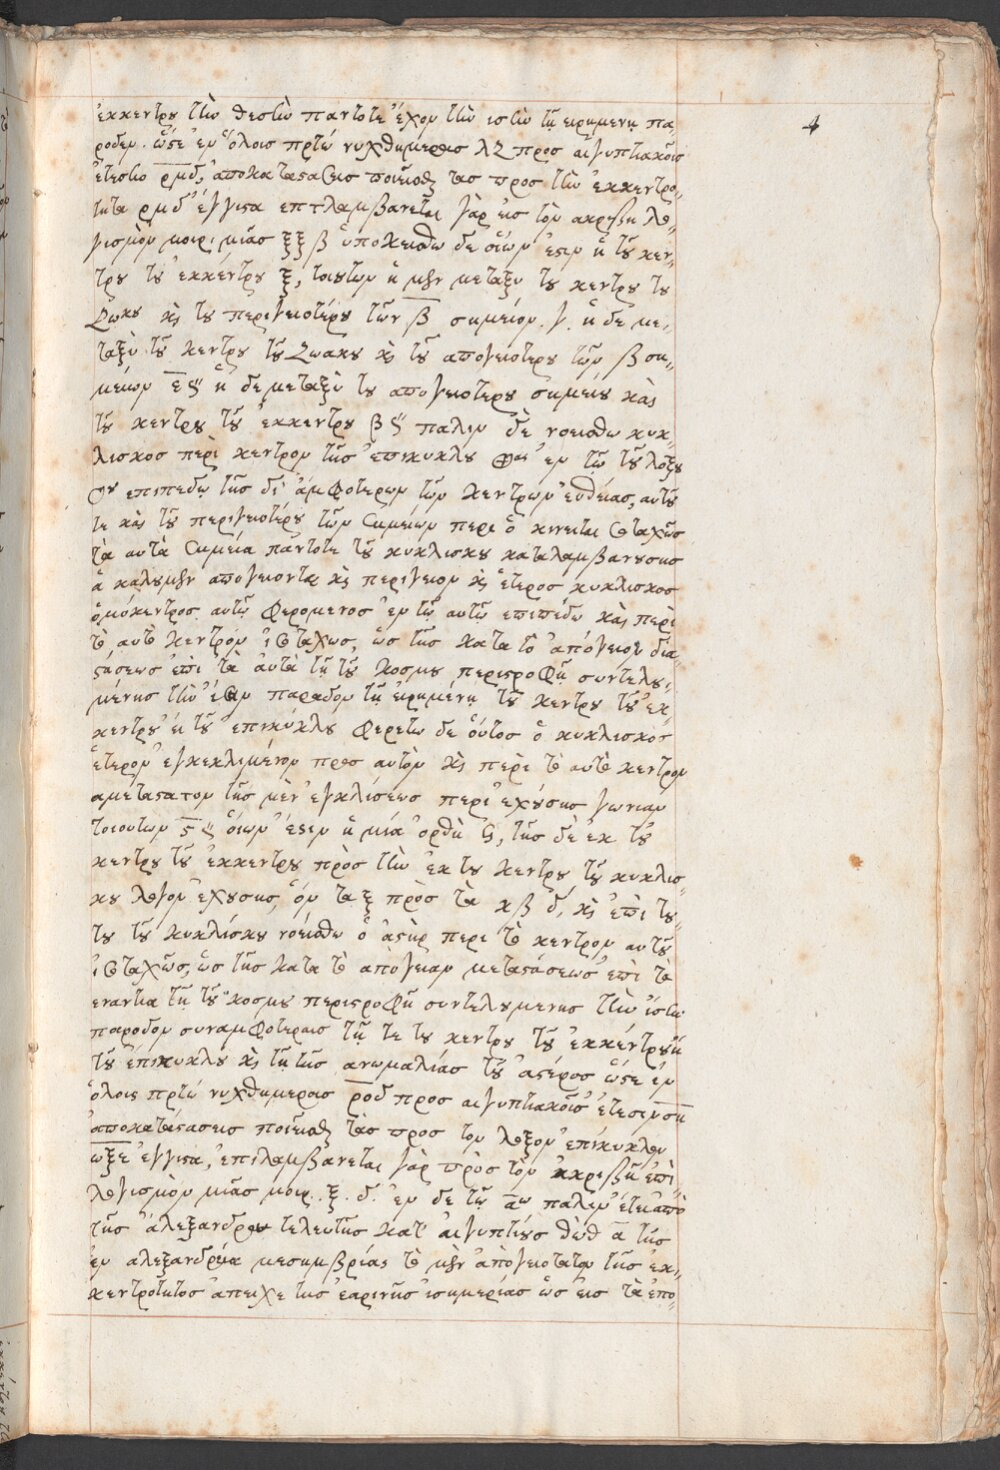 ἐκκεντρου τὴν θεστὴν παντοτε ἔχον τὴν ιστὴν τῇ ειρημενῃ πα-
ροδεν. ὥστε ἐν ὅλοισ πρτὺ νυχθημεροισ λζ προσ αἰγυπτιακοῖσ
ἔτεσιν ρμδ, ἀποκαταστασεισ ποιεῖσθαι τασ προσ τὴν ἐκκεντρο-
τητα ρμδ ἔγγιστα επιλαμβανεται γὰρ εἰσ τὸν ακριβῆ λο-
γισμὸν μοιρ. μιᾶσ ξξ β ὑποκεισθω δε οἵων ἐστιν ἡ τοῦ κεν-
τρου τοῦ ἐκκέντρου ξ, τοιουτων ἡ μὲν μεταξυ του κεντρου του
ζωκου καὶ του περιγειοτέρου τῶν β σημείων. γ. ἡ δε με-
ταξὺ τοῦ κεντρου τοῦ ζωακου καὶ τοῦ απογειοτερου τῶν β ση-
μείων ε ς'' ἡ δε μεταξὺ του απογειοτερου σημείου καὶ
τοῦ κεντρου τοῦ ἐκκεντρου β ς'' παλιν δὲ νοεισθω κυκ-
λισκοσ περὶ κεντρον τῆσ ἐπικυκλου φας ἐν τῷ τοῦ λοξου
ου επιπεδῳ τῆσ δι' ἀμφοτερων τῶν κεντρων εὐθείασ, αυτοῦ
τε καὶ τοῦ περιγειοτέρου τῶν σημείων περι ὃ κινειται ισοταχῶσ
τὰ αυτὰ σημεῖα πάντοτε τοῦ κυκλισκου καταλαμβανουσησ
ἃ καλουμεν απογειοντε καὶ περιγειον καὶ ἕτεροσ κυκλισκοσ
ὁμόκεντροσ αυτῷ φερομενοσ ἐν τῷ αυτῷ επιπέδῳ καὶ περὶ
τὸ αυτὸ κεντρον ισοταχωσ, ὡσ τῆσ κατα τὸ ἀπόγειον δια-
στάσεωσ ἐπὶ τὰ ἀυτὰ τῇ τοῦ κοσμου περιστροφῇ συντελου-
μένησ τὴν ἴσην παροδον τῇ ειρημενῃ τοῦ κεντρου τοῦ ἐκ-
κεντρου ἐι τοῦ επικύκλου φερετω δε οὗτοσ ὁ κυκλισκοσ
ἕτερον ἐγκεκλιμένον προσ αυτὸν καὶ περὶ τὸ αυτὸ κεντρον
αμεταστατον τῆσ μὲν ἐγκλίσεωσ περι ἐχούσησ γωνιαν
τοιουτων ς ς'' οἵων ἐστιν ἡ μία ὀρθὴ ϟ, τῆσ δὲ ἐκ τοῦ
κεντρου τοῦ ἐκκεντρου πρὸσ τὴν ἐκ του κεντρου τοῦ κυκλισ-
κου λογον ἐχουσησ, ὃν τα ξ πρὸσ τὰ κβ δ, καὶ ἐπὶ του-
του τοῦ κυκλίσκου νοείσθω ὁ ἀστὴρ περι τὸ κεντρον αυτοῦ
ισοταχῶσ, ὡσ τῆσ κατα τὸ απόγειον μεταστάσεωσ ἐπὶ τὰ
εναντια τῇ τοῦ κοσμου περιστροφῇ συντελουμενησ τὴν ἴσην
παροδον συναμφοτεραισ τῇ τε του κεντρου τοῦ ἐκκέντρου ἢ
τοῦ ἐπικυκλου καὶ τῇ τῆσ ανωμαλίασ τοῦ ἀστέροσ ὥστε ἐν
ὅλοις πρτύ νυχθημεροισ ροδ προσ αιγυπτιακοῖσ ἔτεσιν ση
ἀποκατάστασεισ ποιεῖσθαι τὰσ προσ τον λοξον ἐπίκυκλον
ωξε ἔγγιστα, ἐπιλαμβάνεται γὰρ πρὸσ τὸν ἀκριβῆ ἐπι-
λογισμὸν μιᾶσ μοιρ. ξ. δ. ἐν δε τῷ αω παλιν ἔτει ἀπὸ
τῆσ ἀλεξανδρου τελευτῆσ κατ' αἰγυπτίουσ θὼθ α τῆσ
ἐν αλεξανδρεία μεσημβρίας τὸ μὲν ἀπόγειοτατον τῆσ ἐκ-
κεντρότητοσ ἀπεῖχε τησ ἐαρινῆσ ἰσημερίασ ὡσ εισ τὰ ἐπο-
4